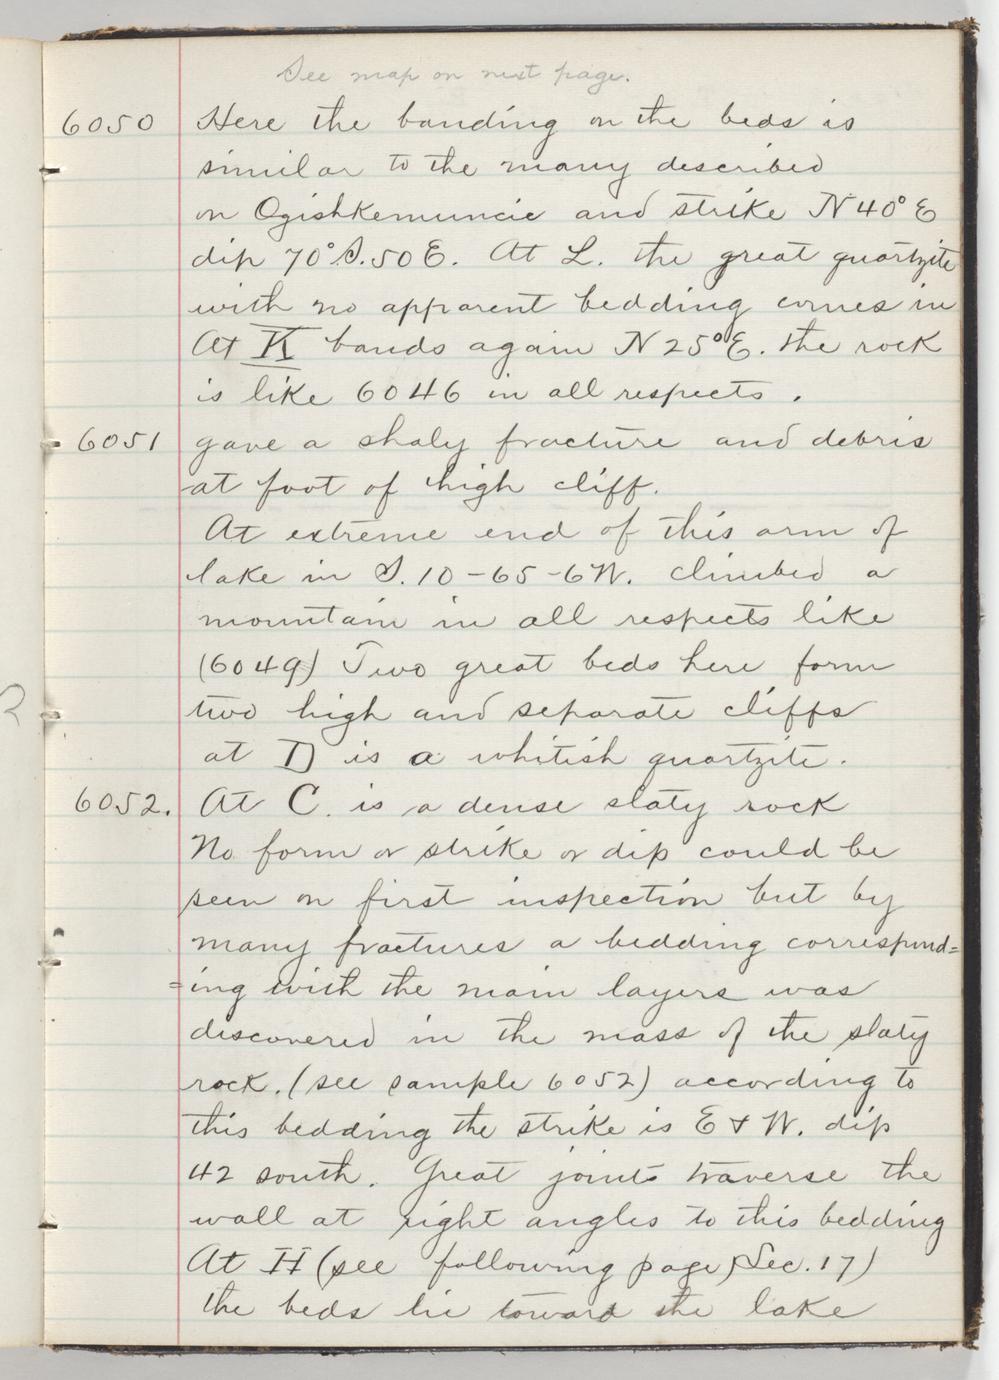 See map on next page.
6050 Here the banding on the beds is
similar to the many described
on Ogishkemuncie and strike N 40° E
dip 70° S. 50 E. At L. the great quartzite
with no apparent bedding comes in
At K bands again N 25° E. the rock
is like 6046 in all respects.
6051 gave a shaly fracture and debris
at foot of high cliff.
At extreme end of this arm of
lake in S. 10-65-6W. climbed a
mountain in all respects like
(6049) Two great beds here form
two high and separate cliffs
at D is a whitish quartzite.
6052. At C. is a dense slaty rock
No form or strike or dip could be
seen on first inspection but by
many fractures a bedding correspond=
=ing with the main layers was
discovered in the mass of the slaty
rock. (see sample 6052) according to
this bedding the strike is E & W. dip
42 south. Great joints traverse the
wall at right angles to this bedding
At H (see following page, Sec. 17)
the beds lie toward the lake